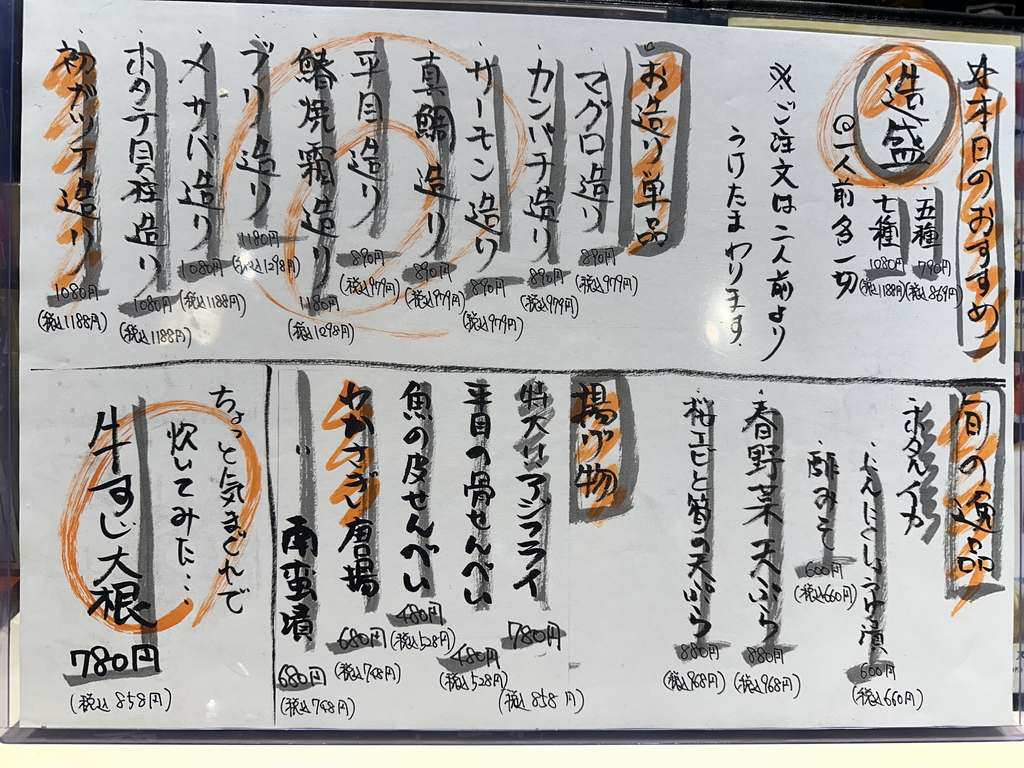 ☆本日のおすすめ
造盛
五種
790円
(税込869円)
七種
1080円
(税込1188円)
◎一人前各一切
※ご注文は二人前より
うけたまわります。
お造り単品
マグロ造り
890円
(税込979円)
カンパチ造り
890円
(税込979円)
サーモン造り
890円
(税込979円)
真鯛造り
890円
(税込979円)
平目造り
890円
(税込979円)
鰆焼霜造り
1180円
(税込1298円)
ブリ造り
1180円
(税込1298円)
〆サバ造り
1080円
(税込1188円)
ホタテ貝柱造り
1080円
(税込1188円)
初ガツオ造り
1080円
(税込1188円)
旬の逸品
ホタルイカ
にんにくしょうゆ漬
600円
(税込660円)
酢みそ
600円
(税込660円)
春野菜天ぷら
880円
(税込968円)
桜エビと筍の天ぷら
880円
(税込968円)
揚げ物
特大アジフライ
780円
(税込858円)
平目の骨せんべい
480円
(税込528円)
魚の皮せんべい
480円
(税込528円)
わかさぎ唐揚
680円
(税込748円)
〃 南蛮漬
680円
(税込748円)
ちょっと気まぐれで
炊いてみた…
牛すじ大根
780円
(税込858円)